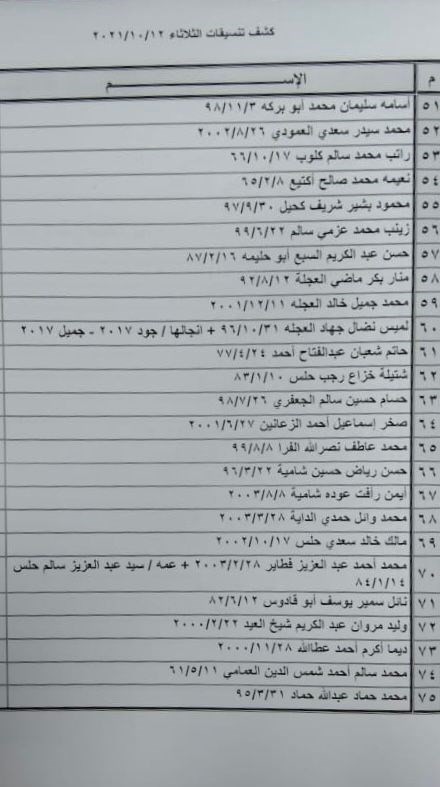 كشف تنسيقات الثلاثاء ٢٠٢١/١٠/١٢
م الإســـــــــم
٥١ أسامه سليمان محمد أبو بركه ٩٨/١١/٣
٥٢ محمد سيدر سعدي العمودي ٢٠٠٢/٨/٢٦
٥٣ راتب محمد سالم كلوب ٦٦/١٠/١٧
٥٤ نعيمه محمد صالح أكتيع ٦٥/٢/٨
٥٥ محمود بشير شريف كحيل ٩٧/٩/٣٠
٥٦ زينب محمد عزمي سالم ٩٩/٦/٢٢
٥٧ حسن عبد الكريم السبع أبو حليمه ٨٧/٢/١٦
٥٨ منار بكر ماضي العجلة ٩٢/٨/١٢
٥٩ محمد جميل خالد العجله ٢٠٠١/١٢/١١
٦٠ لميس نضال جهاد العجله ٩٦/١٠/٣١ + انجالها / جود ٢٠١٧ - جميل ٢٠١٧
٦١ حاتم شعبان عبدالفتاح أحمد ٧٧/٤/٢٤
٦٢ شتيلة خزاع رجب حلس ٨٣/١/١٠
٦٣ حسام حسين سالم الجعفري ٩٨/٧/٢٦
٦٤ صخر إسماعيل أحمد الزعانين ٢٠٠١/٦/٢٧
٦٥ محمد عاطف نصرالله الفرا ٩٩/٨/٨
٦٦ حسن رياض حسين شامية ٩٦/٣/٢٢
٦٧ أيمن رأفت عوده شامية ٢٠٠٣/٨/٨
٦٨ محمد وائل حمدي الداية ٢٠٠٣/٣/٢٨
٦٩ مالك خالد سعدي حلس ٢٠٠٢/١٠/١٧
٧٠ محمد أحمد عبد العزيز فطاير ٢٠٠٣/٢/٢٨ + عمه / سيد عبد العزيز سالم حلس
٨٤/١/١٤
٧١ نائل سمير يوسف أبو قادوس ٨٢/٦/١٢
٧٢ وليد مروان عبد الكريم شيخ العيد ٢٠٠٠/٢/٢٢
٧٣ ديما أكرم أحمد عطاالله ٢٠٠٠/١١/٢٨
٧٤ محمد سالم أحمد شمس الدين العمامي ٦١/٥/١١
٧٥ محمد حماد عبدالله حماد ٩٥/٣/٣١